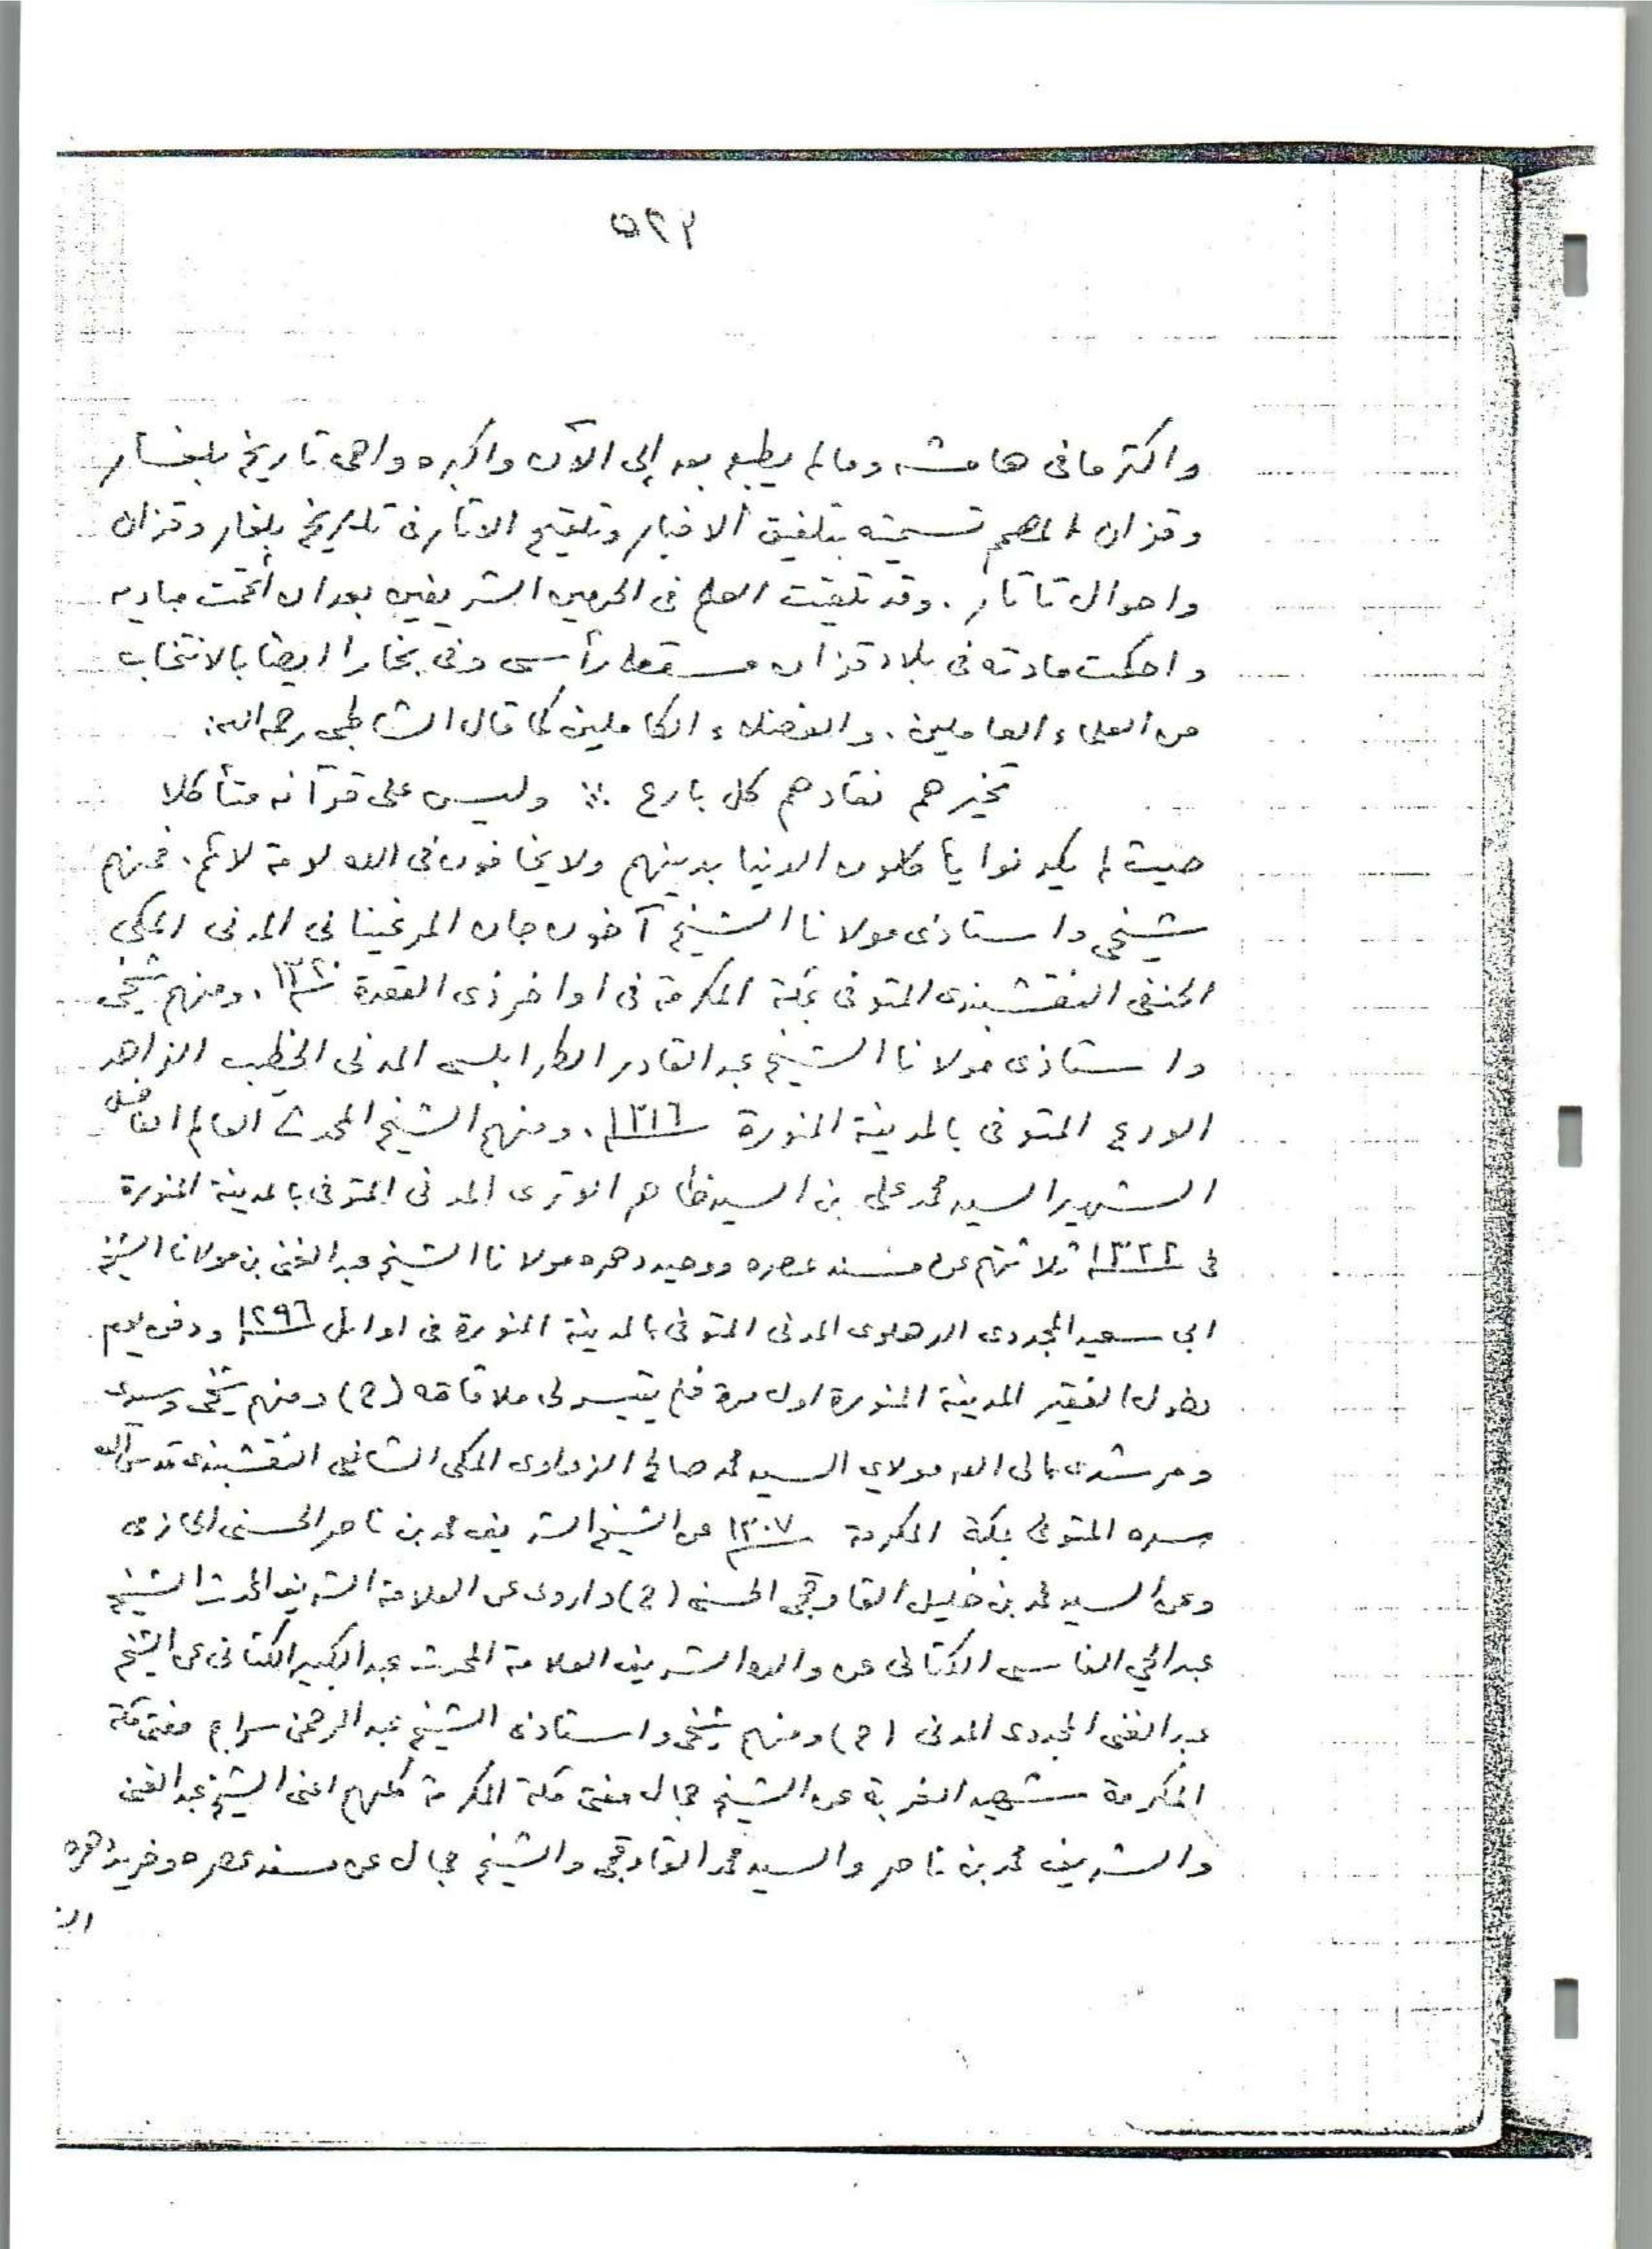 ٥٢٣
واكثر ما في هامشه وما لم يطبع بعد إلى الآن واكبره واهمه تاريخ بلغار
وقزان المهم تسميته بتلفيق الاخبار وتلقيح الاثار في تاريخ بلغار وقزان
واحوال تاتار. وقد تلقيت العلم في الحرمين الشريفين بعد ان أتممت مباديه
واحكمت مادته في بلاد قزان مسقط رأسي وفي بخارا ايضا بالانتخاب
من العلماء العاملين. والفضلاء الكاملين كما قال الشاطبي رحمه الله:
تخيرهم نقادهم كل بارع ∴ وليس على قرآنه متأكلا
حيث لم يكونوا يأكلون الدنيا بدينهم ولا يخافون في الله لومة لائم. فمنهم
شيخي واستاذي مولانا الشيخ آخون جان المرغيناني المدني المكي
الحنفي النقشبندي المتوفى بمكة المكرمة في اواخر ذي القعدة ١٣٢٠. ومنهم شيخي
واستاذي مولانا الشيخ عبد القادر الطرابلسي المدني الخطيب الزاهد
الورع المتوفى بالمدينة المنورة ١٣١٦. ومنهم الشيخ المحدث العالم الفاضل
الشهير السيد محمد علي بن السيد ظاهر الوتري المدني المتوفى بالمدينة المنورة
في ١٣٢٢ ثلاثتهم عن مسند عصره ووحيد دهره مولانا الشيخ عبد الغني بن مولانا الشيخ
ابي سعيد المجددي الدهلوي المدني المتوفى بالمدينة المنورة في اوائل ١٢٩٦ ودفن يوم
دخول الفقير المدينة المنورة اول مرة فلم يتيسر لي ملاقاته (ح) ومنهم شيخي وسيدي
ومرشدي الى الله مولاي السيد محمد صالح الزواوي المكي الشافعي النقشبندي قدس الله
سره المتوفى بمكة المكرمة ١٣٠٧ عن الشيخ الشريف محمد بن ناصر الحسني الحازمي
وعن السيد محمد بن خليل القاوقجي الحسني (ح) واروي عن العلامة الشريف المحدث الشيخ
عبد الحي الفاسي الكتاني عن والده الشريف العلامة المحدث عبد الكبير الكتاني عن الشيخ
عبد الغني المجددي المدني (ح) ومنهم شيخي واستاذي الشيخ عبد الرحمن سراج مفتي مكة
المكرمة شهيد الغربة عن الشيخ جمال مفتي مكة المكرمة كلهم اعني الشيخ عبد الغني
والشريف محمد بن ناصر والسيد محمد القاوقجي والشيخ جمال عن مسند عصره وفريد دهره